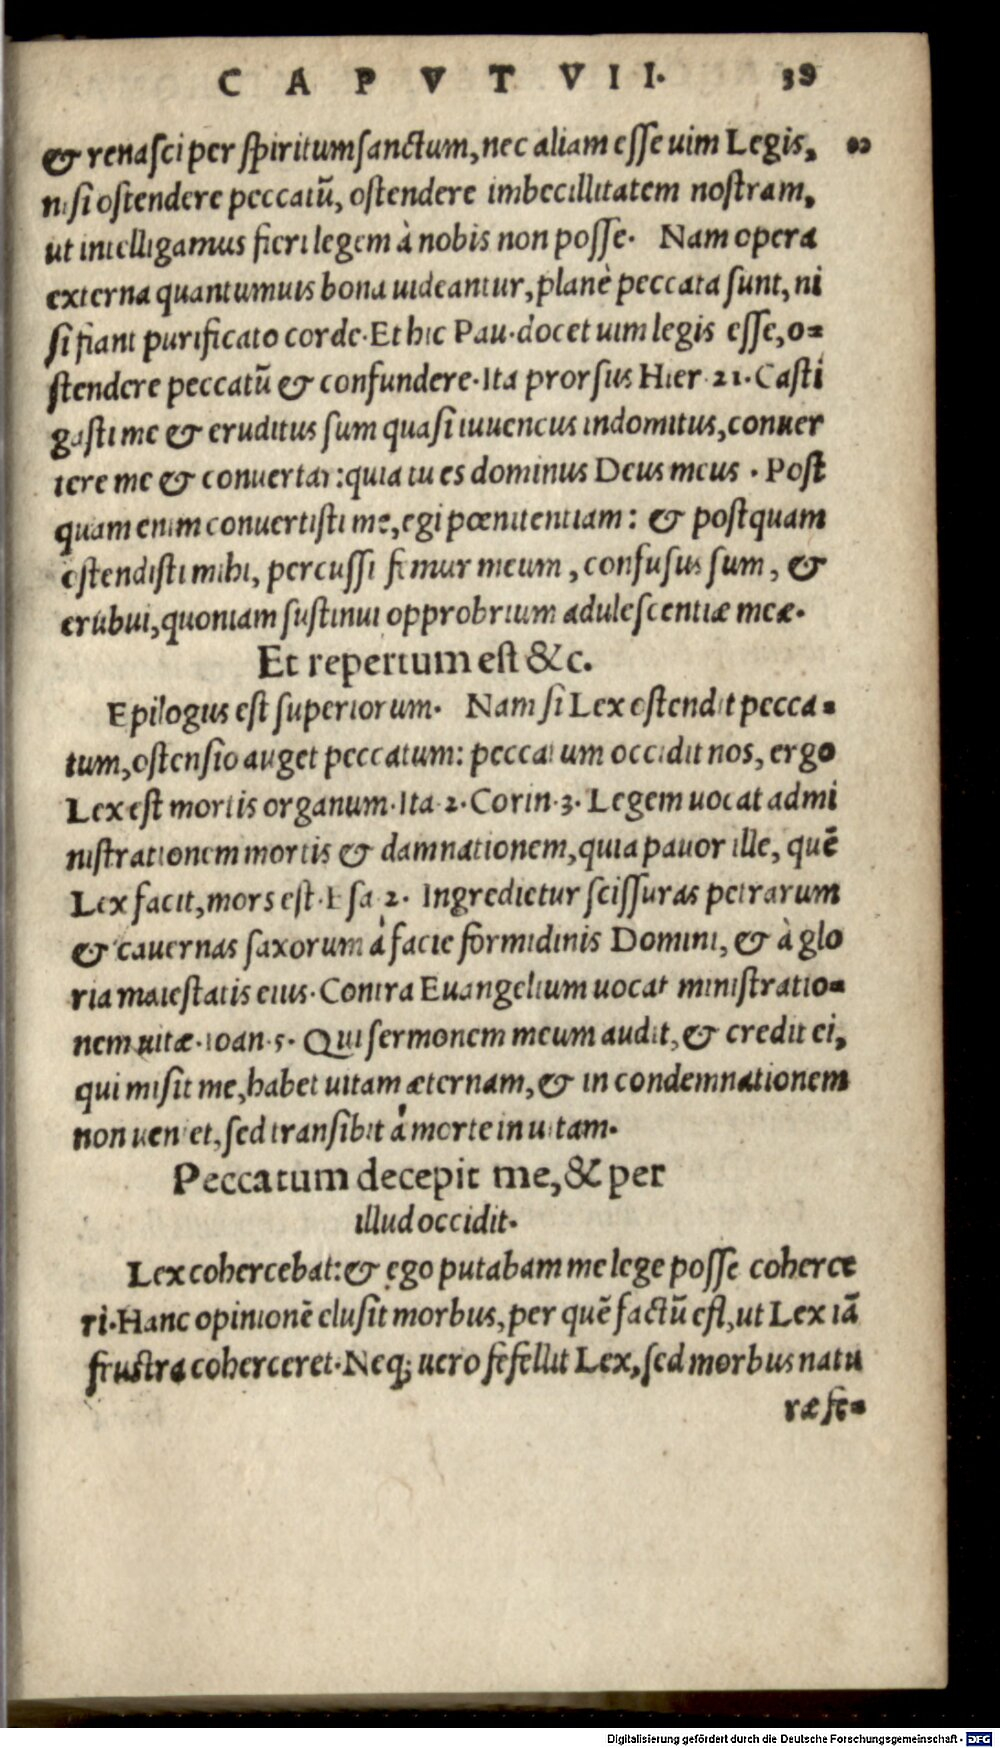 CAPVT VII. 39
& renasci per spiritum sanctum, nec aliam esse uim Legis,
nisi ostendere peccatū, ostendere imbecillitatem nostram,
ut intelligamus fieri legem à nobis non posse. Nam opera
externa quantumuis bona uideantur, planè peccata sunt, ni
si fiant purificato corde. Et hic Pau. docet uim legis esse, o=
stendere peccatū & confundere. Ita prorsus Hier. 21. Casti
gasti me & eruditus sum quasi iuuencus indomitus, conuer
tere me & conuertar: quia tu es dominus Deus meus. Post
quam enim conuertisti me, egi pœnitentiam: & postquam
ostendisti mihi, percussi femur meum, confusus sum, &
erubui, quoniam sustinui opprobrium adulescentiæ meæ.
Et repertum est &c.
Epilogus est superiorum. Nam si Lex ostendit pecca=
tum, ostensio auget peccatum: peccatum occidit nos, ergo
Lex est mortis organum. Ita 2. Corin. 3. Legem uocat admi
nistrationem mortis & damnationem, quia pauor ille, quē
Lex facit, mors est. Esa. 2. Ingredietur scissuras petrarum
& cauernas saxorum à facie formidinis Domini, & à glo
ria maiestatis eius. Contra Euangelium uocat ministratio=
nem uitæ. Ioan. 5. Qui sermonem meum audit, & credit ei,
qui misit me, habet uitam æternam, & in condemnationem
non ueniet, sed transibit à morte in uitam.
Peccatum decepit me, & per
illud occidit.
Lex cohercebat: & ego putabam me lege posse coherce
ri. Hanc opinionē elusit morbus, per quē factū est, ut Lex iā
frustra coherceret. Neq; uero fefellit Lex, sed morbus natu
ræ fe=
Digitalisierung gefördert durch die Deutsche Forschungsgemeinschaft - DFG